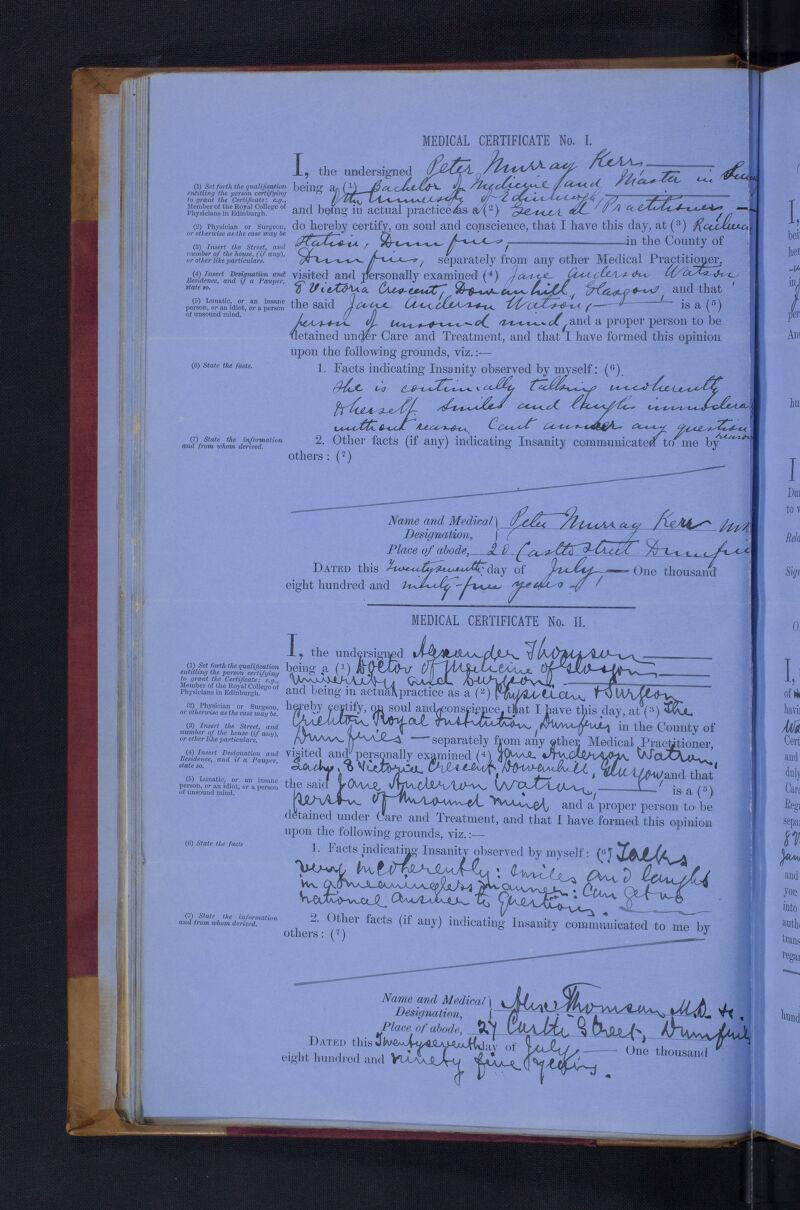 MEDICAL CERTIFICATE No. I.
I, the undersigned Peter Murray Kerr
(1) Set forth the qualification entitling the person certifying to grant the Certificate: e.g., Member of the Royal College of Physicians in Edinburgh.
being a (1) Bachelor of Medicine and Master in
of the University of Edinburgh
and being in actual practice as a (2) General Practitioner
(2) Physician or Surgeon, or otherwise as the case may be
do hereby certify, on soul and conscience, that I have this day, at (3)
Station, Dumfries, in the County of
(3) Insert the Street, and number of the house, (if any), or other like particulars.
Dumfries, separately from any other Medical Practitioner,
(4) Insert Designation and Residence, and if a Pauper, state so.
visited and personally examined (4) Jane Anderson Watson
8 Victoria Crescent, Dowanhill, Glasgow, and that
(5) Lunatic, or an insane person, or an idiot, or a person of unsound mind.
the said Jane Anderson Watson, is a (5)
person of unsound mind, and a proper person to be
detained under Care and Treatment, and that I have formed this opinion
upon the following grounds, viz.:—
(6) State the facts.
1. Facts indicating Insanity observed by myself: (6).
She is continually talking incoherently
to herself. Smiles and laughs
without reason. Cant answer any question
(7) State the information and from whom derived.
2. Other facts (if any) indicating Insanity communicated to me by
others: (7)
Name and Medical Designation, Peter Murray Kerr
Place of abode, 20 Castle Street
DATED this Twentyseventh day of July One thousand
eight hundred and ninety-five years
MEDICAL CERTIFICATE No. II.
I, the undersigned Alexander Thomson
(1) Set forth the qualification entitling the person certifying to grant the Certificate: e.g., Member of the Royal College of Physicians in Edinburgh.
being a (1) Doctor of Medicine of Glasgow
University and Surgeon
and being in actual practice as a (2) Physician & Surgeon
(2) Physician or Surgeon, or otherwise as the case may be.
hereby certify, on soul and conscience, that I have this day, at (3) The
Crichton Royal Institution, Dumfries in the County of
(3) Insert the Street, and number of the house (if any), or other like particulars.
Dumfries separately from any other Medical Practitioner,
(4) Insert Designation and Residence, and if a Pauper, state so.
visited and personally examined (4) Jane Anderson Watson,
Lady, 8 Victoria Crescent, Dowanhill, Glasgow and that
(5) Lunatic, or an insane person, or an idiot, or a person of unsound mind.
the said Jane Anderson Watson, is a (5)
person of unsound mind and a proper person to be
detained under Care and Treatment, and that I have formed this opinion
upon the following grounds, viz.:—
(6) State the facts
1. Facts indicating Insanity observed by myself: (6) Talks
very incoherently: smiles and laughs
in a meaningless manner: can get no
rational answer to questions.
(7) State the information and from whom derived.
2. Other facts (if any) indicating Insanity communicated to me by
others: (7)
Name and Medical Designation, Alexr Thomson M.D. &c.
Place of abode, 27 Castle Street, Dumfries
DATED this Twentyseventh day of July, One thousand
eight hundred and ninety five years.